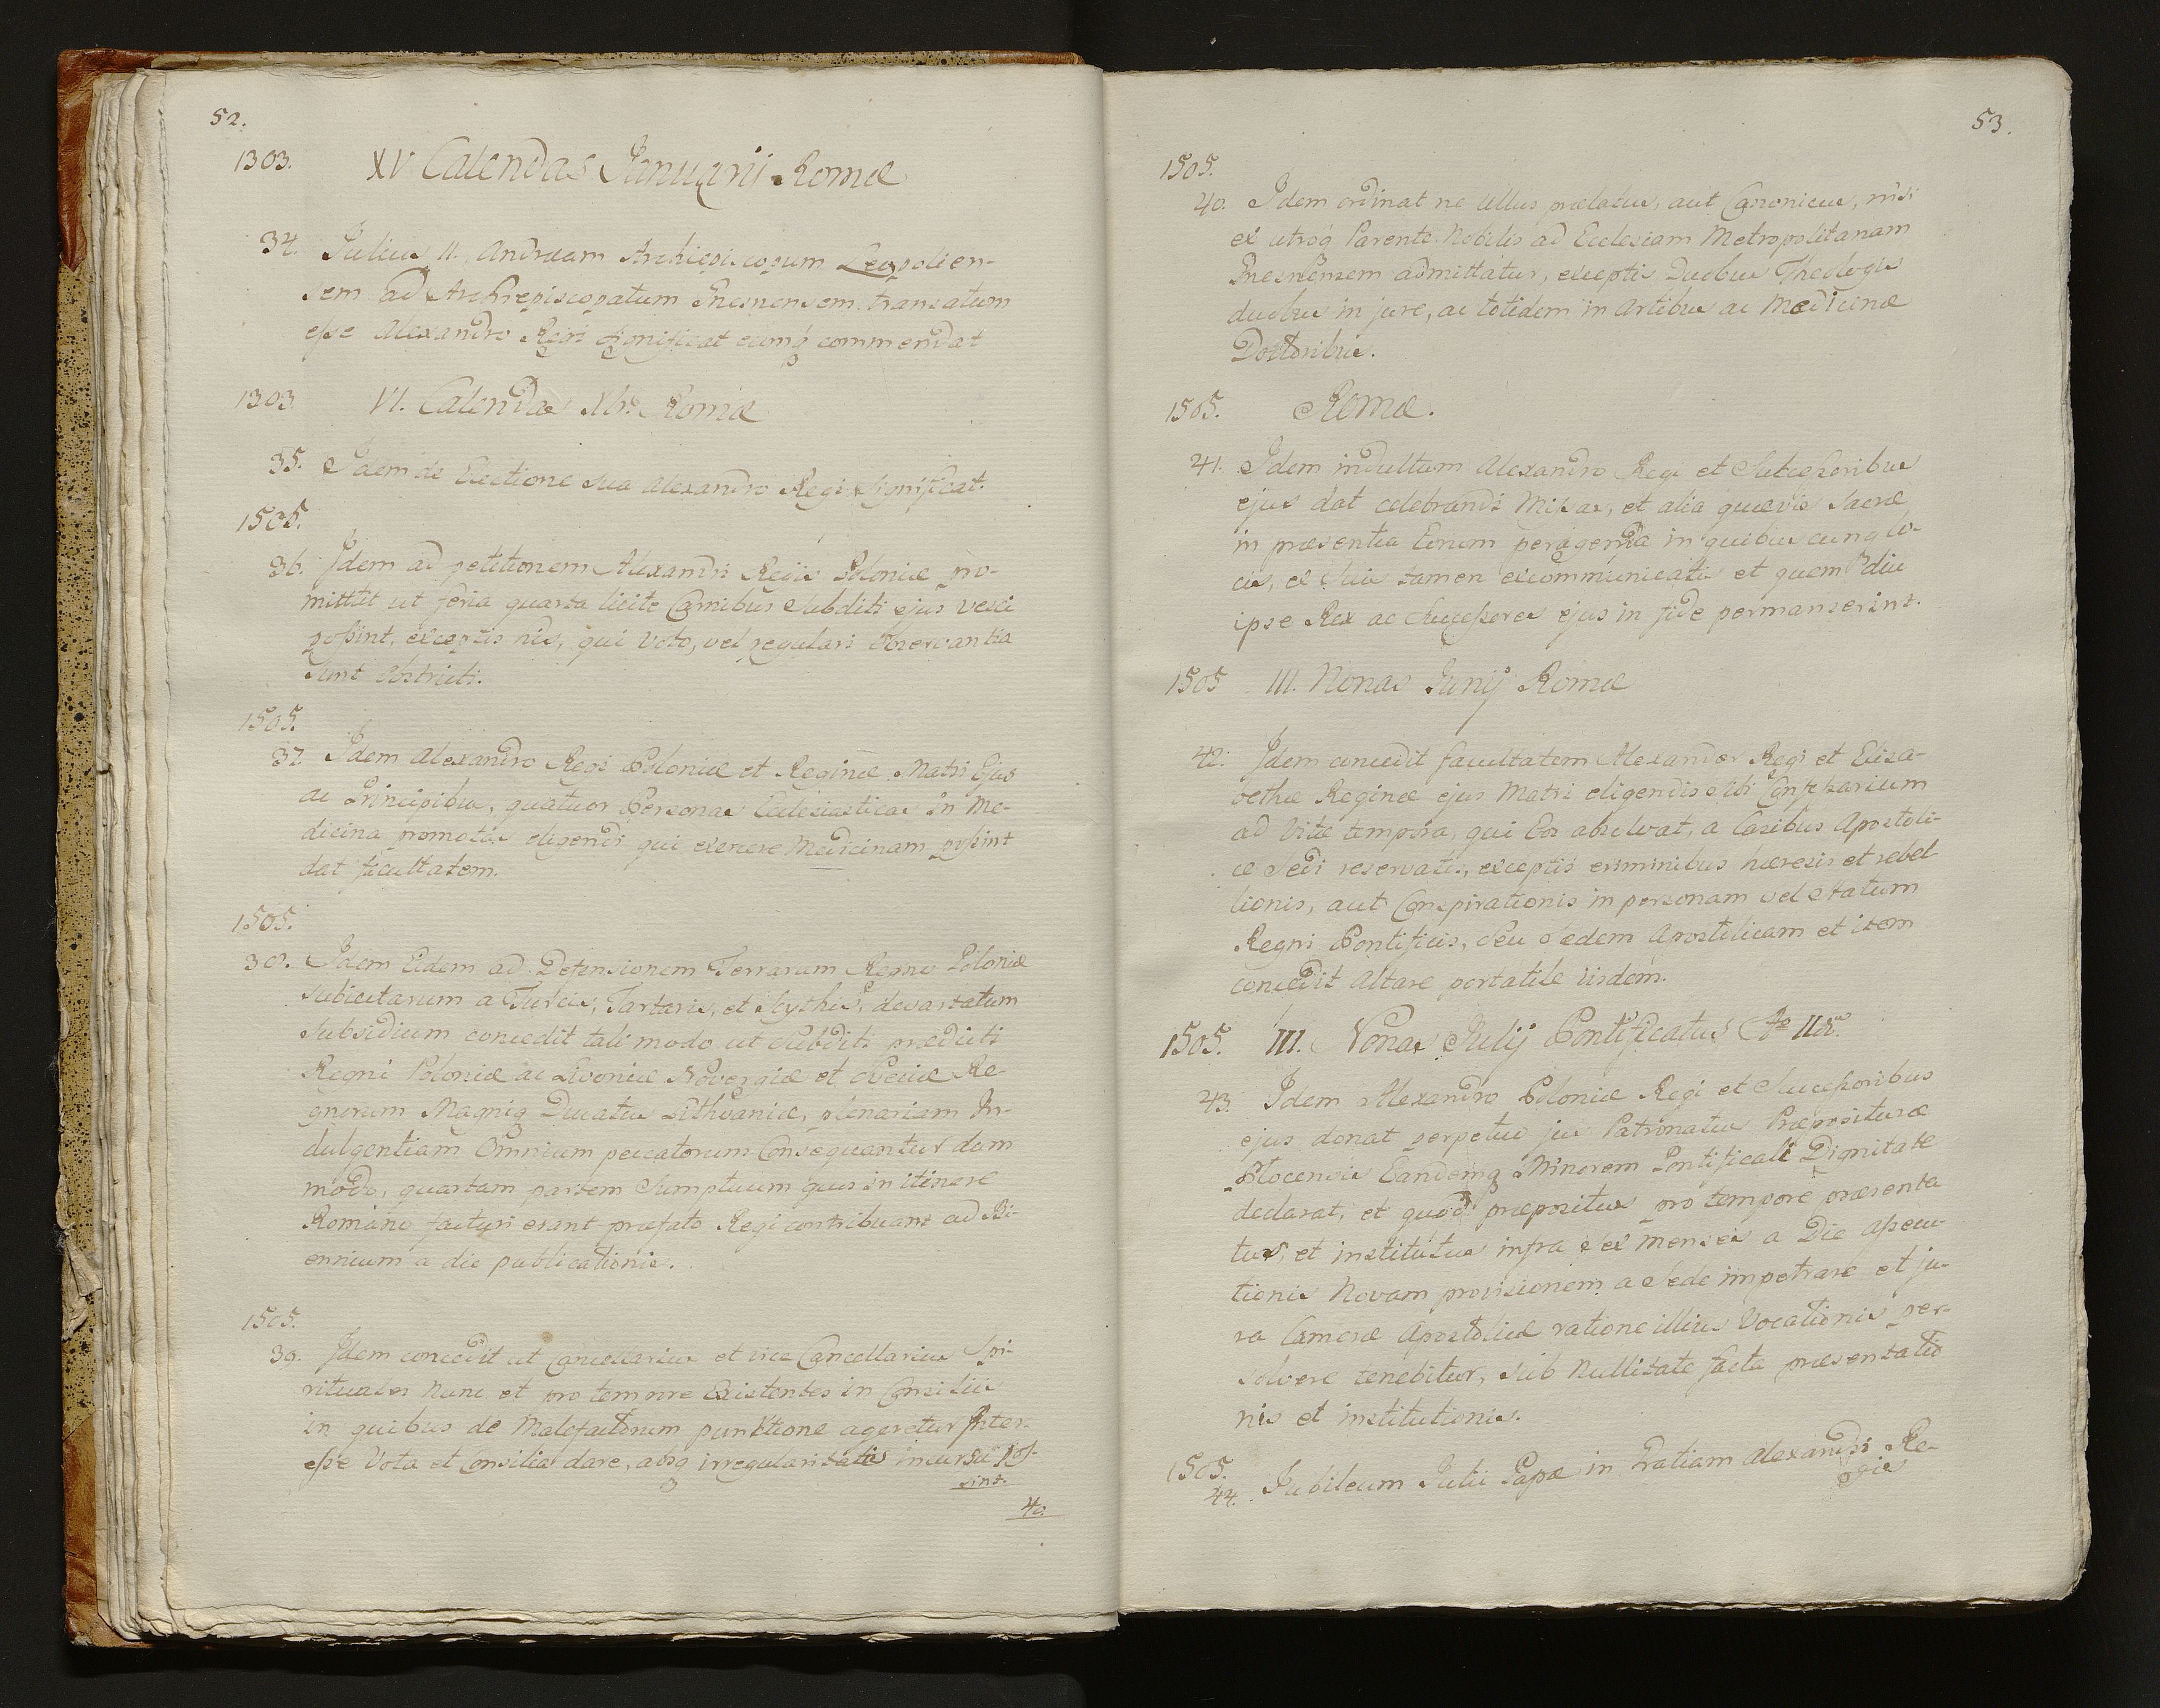 52.
1303. XV Calendas Januarij Romæ
34. Julius II. Andream Archiepiscopum Leopolien-
sem ad Archiepiscopatum Gnesnensem translatum
esse Alexandro Regi significat eumq commendat
1303 VI. Calendas Xbr. Romæ
35. Idem de Electione sua Alexandro Regi Significat.
1505.
36. Idem ad petitionem Alexandri Regis Poloniæ pro-
mittit ut feria quarta licite Carnibus Subditi ejus vesci
possint, exceptis his, qui Voto, vel regulari Observantia
Sunt Obstricti.
1505.
37. Idem Alexandro Regi Poloniæ et Reginæ Matri Ejus
ac Principibus, quatuor Personas Ecclesiasticas in Me-
dicina promotas eligendi qui exercere Medicinam possint
dat facultatem.
1505.
38. Idem Eidem ad Defensionem Terrarum Regno Poloniæ
subiectarum a Turcis, Tartaris, et Scythis, devastatum
Subsidium concedit tali modo ut Subditi prædicti
Regni Poloniæ ac Livoniæ Novergiæ et Sveciæ Re-
gnorum Magniq Ducatus Lithvaniæ, plenariam In-
dulgentiam Omnium peccatorum Consequantur dum
modo, quartam partem Sumptuum quos in itinere
Romano facturi erant præfato Regi contribuant ad Bi-
ennium a die publicationis.
1505.
39. Idem concedit ut Cancellarius et vice Cancellarius Spi-
rituales nunc et pro tempore Existentes in Consiliis
in quibus de Malefactorum punktione ageretur Inter-
esse Vota et Consilia dare, absq irregularitatis incursu pos-
sint.
40.
53.
1505.
40. Idem ordinat ne Ullus prælatus, aut Canonicus, nisi
ex utroq Parente Nobilis ad Ecclesiam Metropolitanam
Gnesnensem admittatur, exceptis Duobus Theologis
duobus in jure, ac totidem in Artibus ac Medicinæ
Doctoribus.
1505. Romæ.
41. Idem indultum Alexandro Regi et Successoribus
ejus dat celebrandi Missas, et alia quævis Sacra
in præsentia Eorum peragenda in quibus cunq lo-
cis, ex suis tamen excommunicatis et quem diu
ipse Rex ac Successores ejus in fide permanserint.
1505 III. Nonas Junij Romæ
42. Idem concedit facultatem Alexander Regi et Elisa-
bethæ Reginæ ejus Matri eligendis sibi Confessarium
ad Vitæ tempora, qui Eos absolvat, a Casibus Apostoli-
cæ Sedi reservatis, exceptis criminibus hæresis et rebel
lionis, aut Conspirationis in personam vel Statum
Regni Pontificis, Seu Sedem Apostolicam et item
concedit Altare portatile iisdem.
1505. III. Nonas Julij Pontificatus Ao IIdo.
43. Idem Alexandro Poloniæ Regi et Successoribus
ejus donat perpetuo jus Patronatus Præpositurae
Plocensis Eandemq Minorem Pontificali Dignitate
declarat, et quod præpositus pro tempore præsenta
tus, et institutus infra sex menses a Die assecu-
tionis Novam provisionem a Sede impetrare et ju-
ra Cameræ Apostolicæ ratione illius Vocationis per-
solvere tenebitur, sub nullitate factæ præsentatio
nis et institutionis.
1505.
44. Jubileum Julii Papæ in Gratiam Alexandri Re-
gis